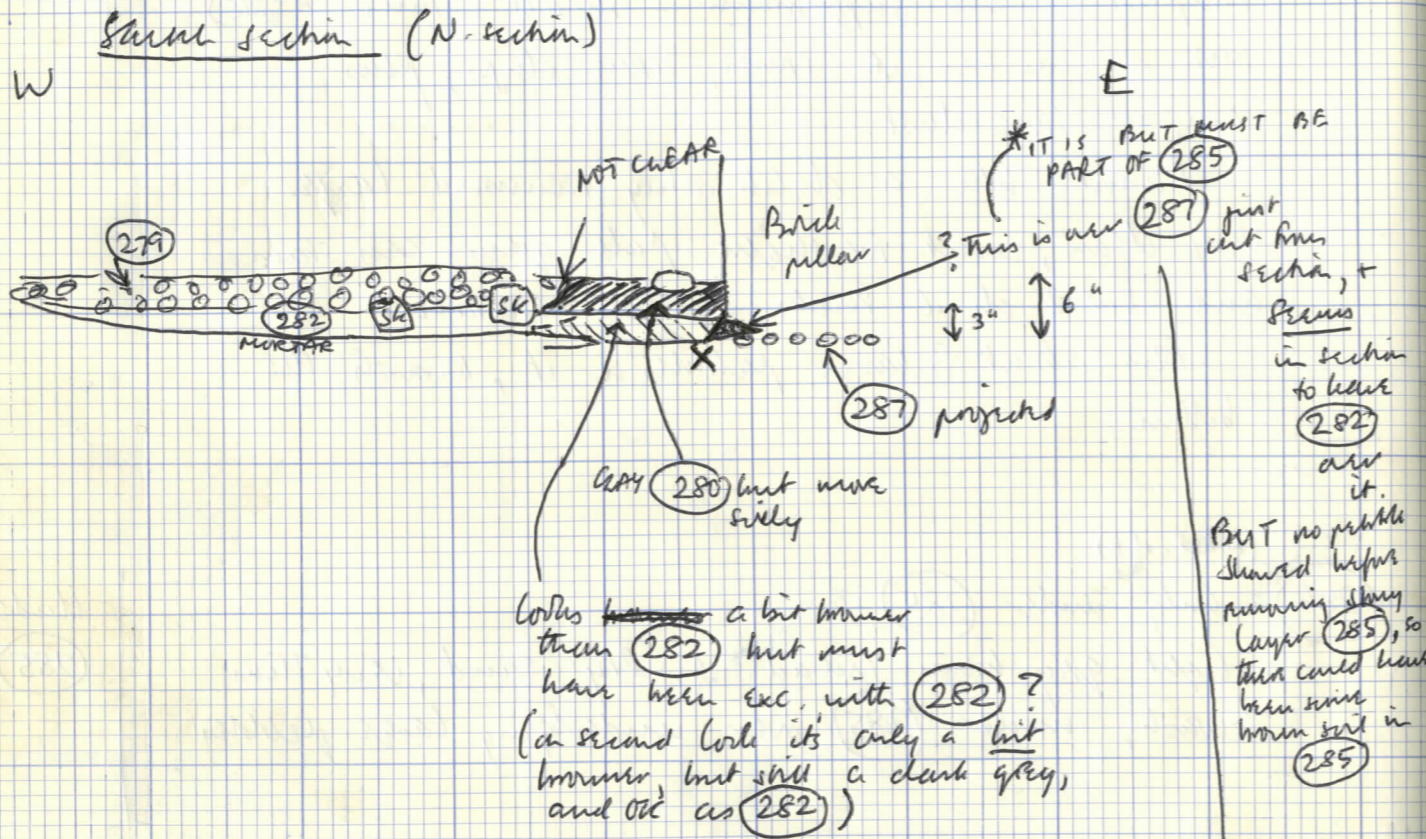 section (N. section)
W
E
NOT CLEAR
* IT IS BUT MUST BE
PART OF 285
279
Brick
pillar
? This is over 287 just
cut from
section, +
seems
in section
to have
282
over
it.
BUT no pebble
showed before
removing stony
layer 285, so
there could have
been some
brown soil in
285
282
MORTAR
SK
SK
3"
6"
X
287 projected
CLAY 280 but more
silly
looks a bit browner
than 282 but must
have been exc. with 282 ?
(on second look it's only a bit
browner, but still a dark grey,
and OK as 282)